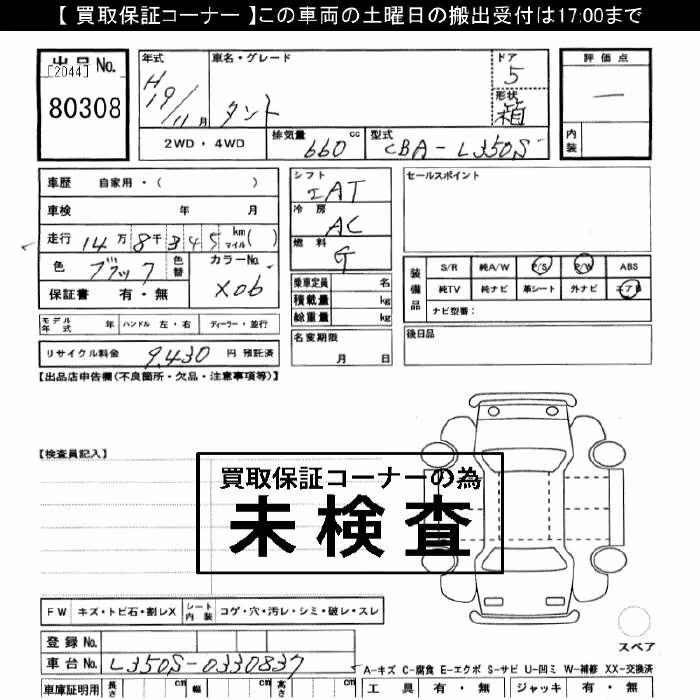 【 買取保証コーナー 】この車両の土曜日の搬出受付は17:00まで
出品 No.
[2044]
80308
年式
H19/11月
車名・グレード
タント
ドア
5
形状
箱
評価点
一
内装
2WD・4WD
排気量 660 cc
型式 CBA-L350S
車歴 自家用・( )
車検 年 月
走行 14万8千345 km マイル ( )
色 ブラック
色替
カラーNo. X06
保証書 有・無
シフト
IAT
冷房
AC
燃料
G
乗車定員 名
積載量 kg
総重量 kg
セールスポイント
装備品
S/R 純A/W P/S P/W ABS
純TV 純ナビ 革シート 外ナビ エアB
ナビ型番:
モデル年式 年 ハンドル 左・右 ディーラー・並行
名変期限
月 日
後日品
リサイクル料金 9,430 円 預託済
【出品店申告欄(不良箇所・欠品・注意事項等)】
【検査員記入】
買取保証コーナーの為
未検査
FW キズ・トビ石・割レX シート内装 コゲ・穴・汚レ・シミ・破レ・スレ
スペア
登録 No.
車台 No. L350S-0330837
A-キズ C-腐食 E-エクボ S-サビ U-凹ミ W-補修 XX-交換済
車庫証明用 長さ cm 幅 cm 高さ cm
工具 有・無 ジャッキ 有・無